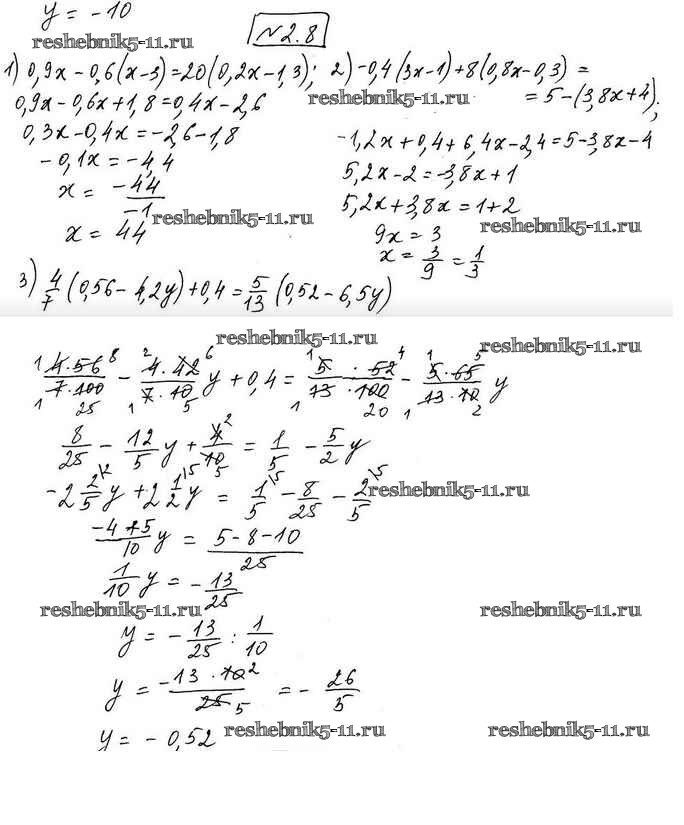 y = -10
reshebnik5-11.ru
№2.8
1) 0,9x - 0,6(x-3) = 20(0,2x - 1,3);
0,9x - 0,6x + 1,8 = 0,4x - 2,6
0,3x - 0,4x = -2,6 - 1,8
-0,1x = -4,4
x = -44/-1
x = 44
reshebnik5-11.ru
2) -0,4(3x-1) + 8(0,8x - 0,3) =
= 5 - (3,8x + 4);
reshebnik5-11.ru
-1,2x + 0,4 + 6,4x - 2,4 = 5 - 3,8x - 4
5,2x - 2 = -3,8x + 1
5,2x + 3,8x = 1 + 2
9x = 3
reshebnik5-11.ru
x = 3/9 = 1/3
3) 4/7 (0,56 - 4,2y) + 0,4 = 5/13 (0,52 - 6,5y)
reshebnik5-11.ru
reshebnik5-11.ru
4·56/7·100 - 4·42/7·10 y + 0,4 = 5·52/13·100 - 5·65/13·10 y
8/25 - 12/5 y + 4/10 = 1/5 - 5/2 y
-2 2/5 y + 2 1/2 y = 1/5 - 8/25 - 2/5
reshebnik5-11.ru
-4+5/10 y = 5-8-10/25
1/10 y = - 13/25
reshebnik5-11.ru
reshebnik5-11.ru
y = - 13/25 : 1/10
y = -13·10/25 = - 26/5
y = - 0,52
reshebnik5-11.ru
reshebnik5-11.ru